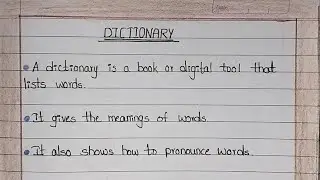 DICTIONARY
A dictionary is a book or digital tool that
lists words.
It gives the meanings of words.
It also shows how to pronounce words.